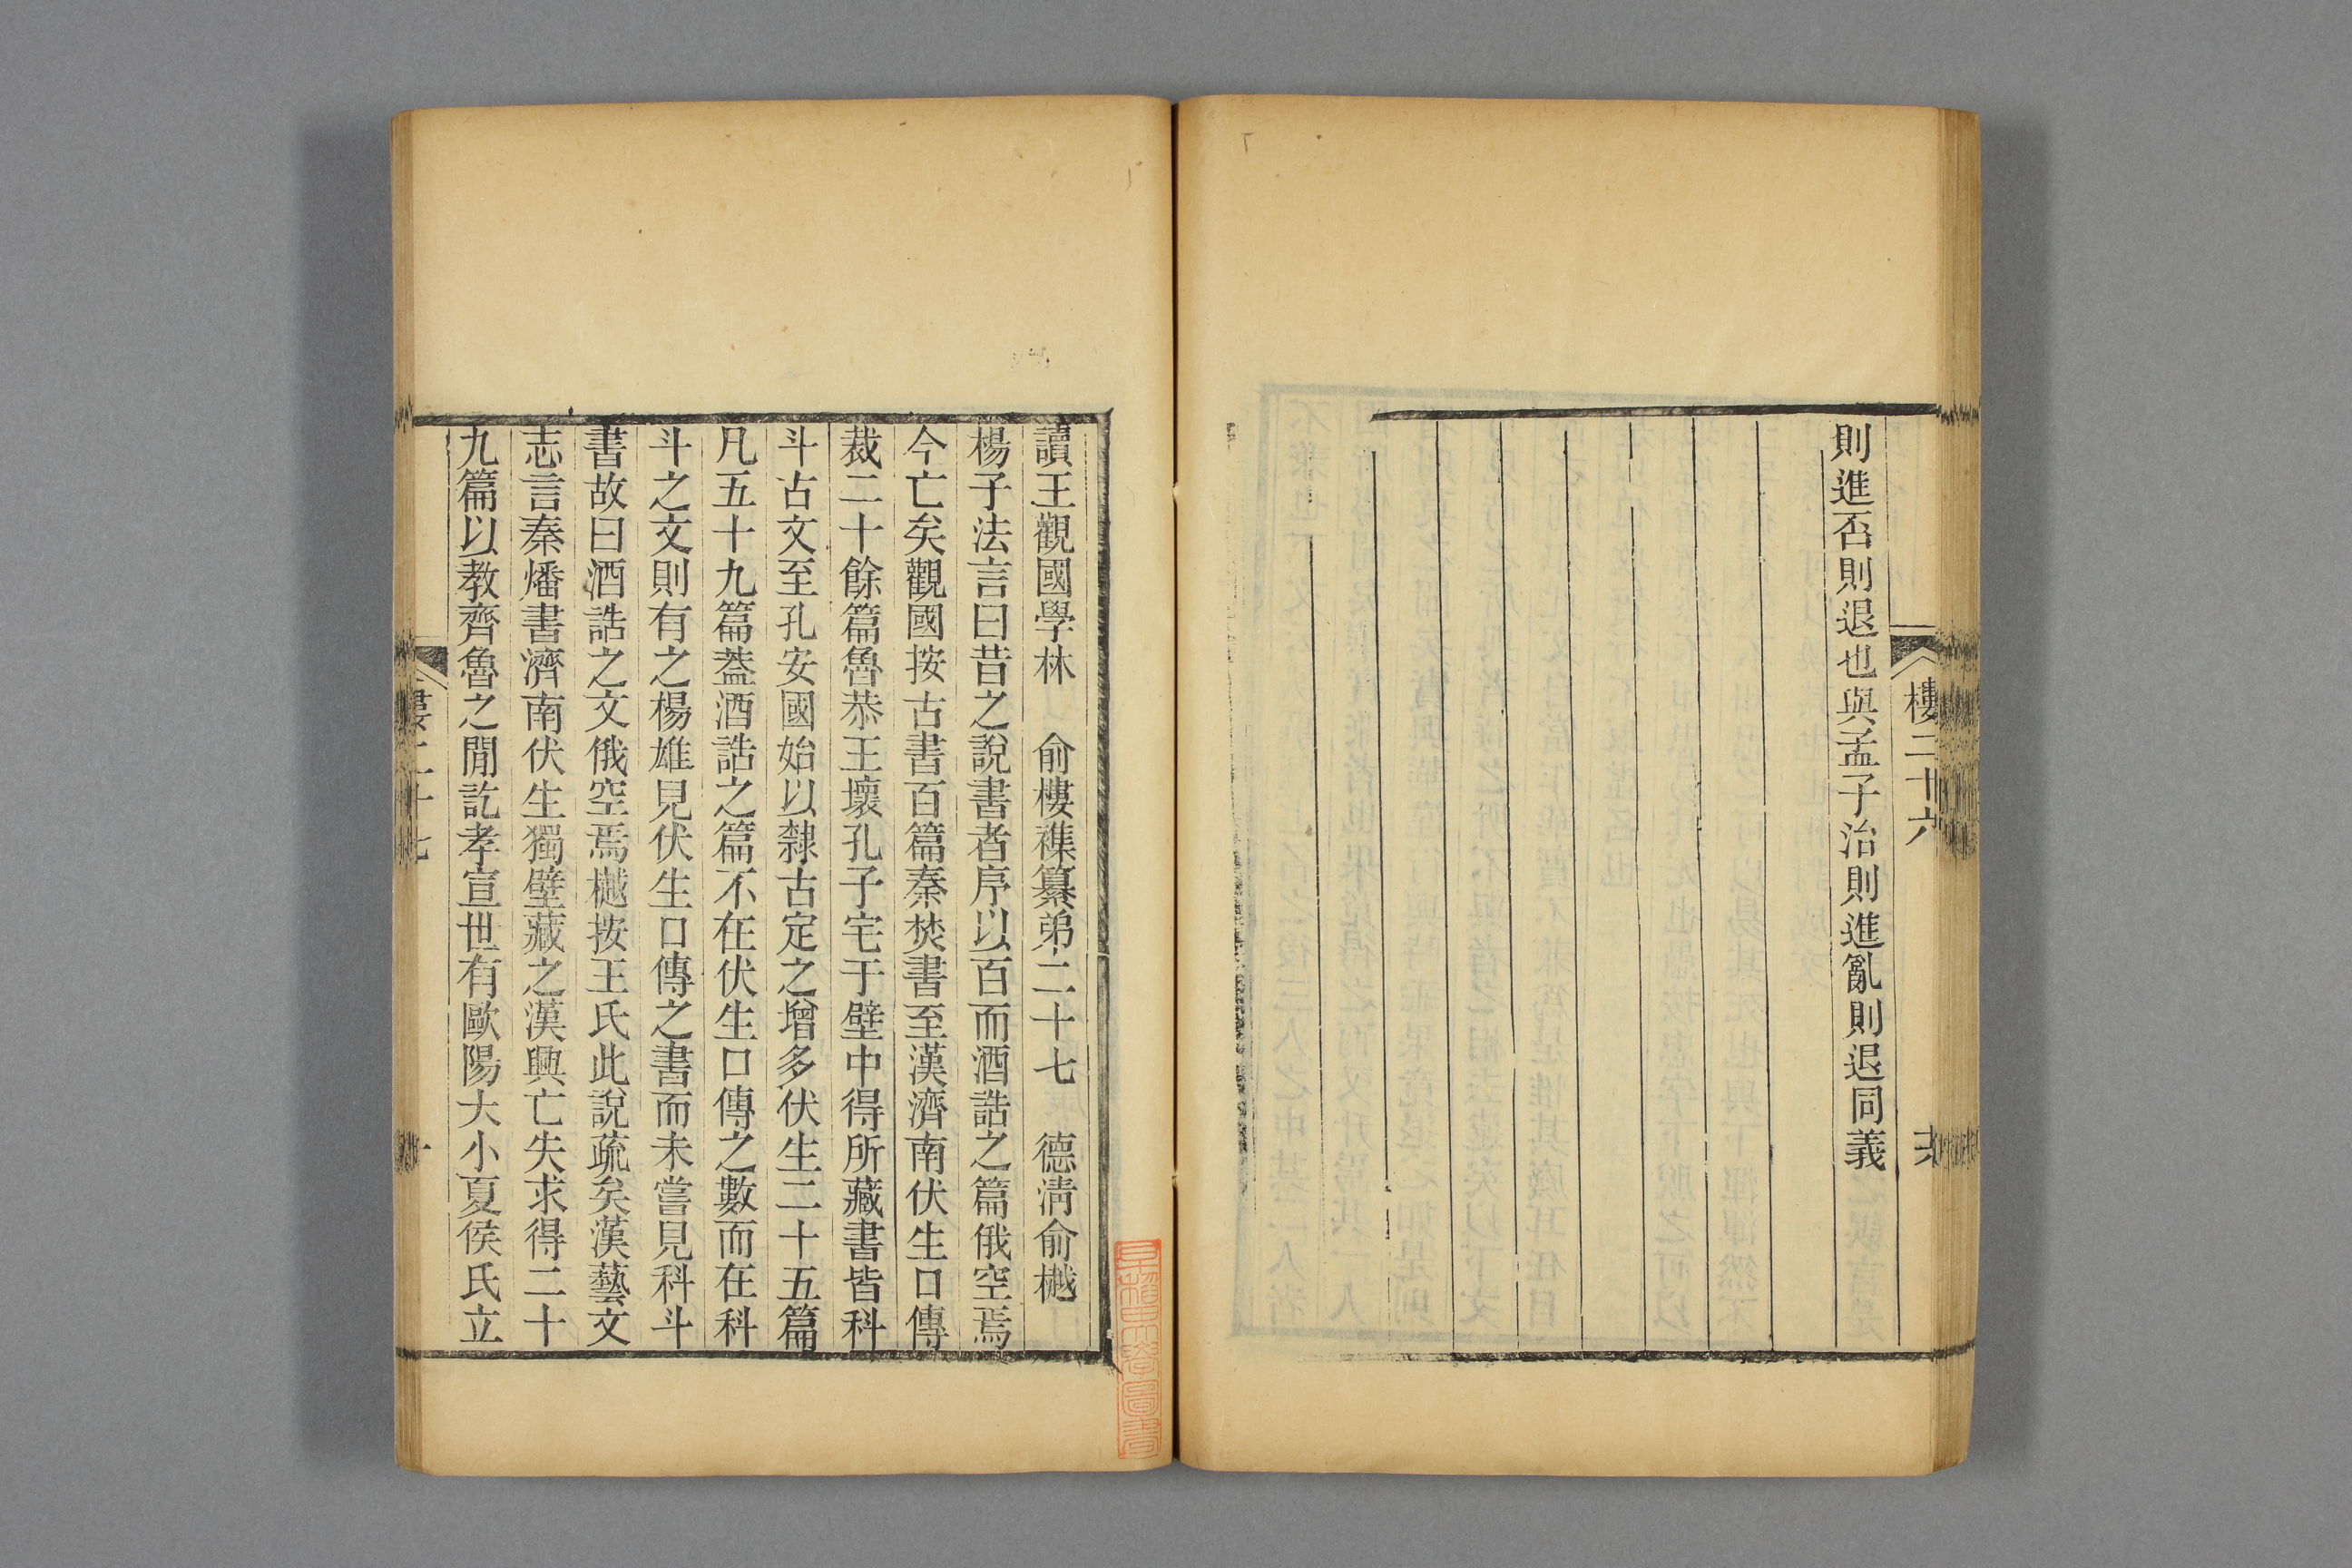 則進否則退也與孟子治則進亂則退同義
樓二十六
讀王觀國學林　俞樓襍纂弟二十七　德淸俞樾
楊子法言曰昔之說書者序以百而酒誥之篇俄空焉
今亡矣觀國按古書百篇秦焚書至漢濟南伏生口傳
裁二十餘篇魯恭王壞孔子宅于壁中得所藏書皆科
斗古文至孔安國始以隸古定之增多伏生二十五篇
凡五十九篇蓋酒誥之篇不在伏生口傳之數而在科
斗之文則有之楊雄見伏生口傳之書而未嘗見科斗
書故曰酒誥之文俄空焉樾按王氏此說疏矣漢藝文
志言秦燔書濟南伏生獨壁藏之漢興亡失求得二十
九篇以教齊魯之閒訖孝宣世有歐陽大小夏侯氏立
樓二十七
一